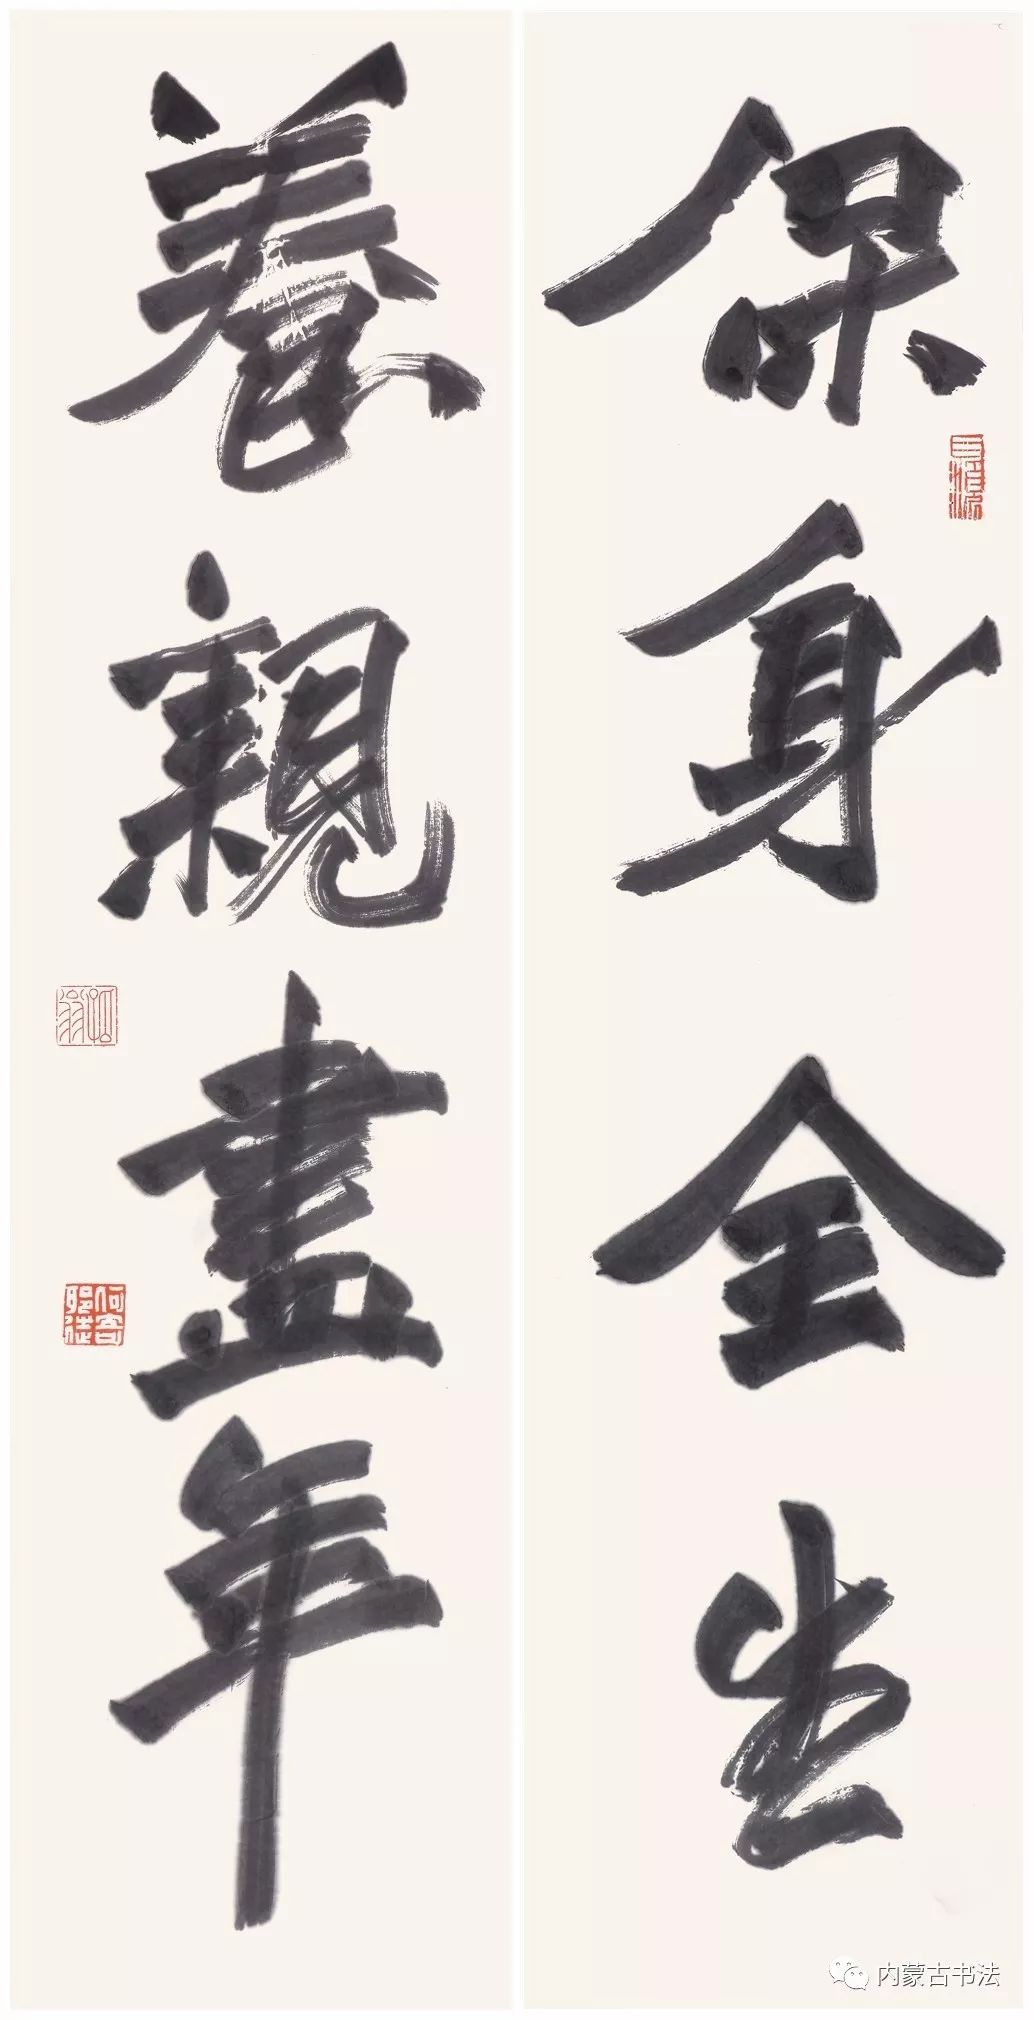 保身全生
養親盡年
内蒙古书法